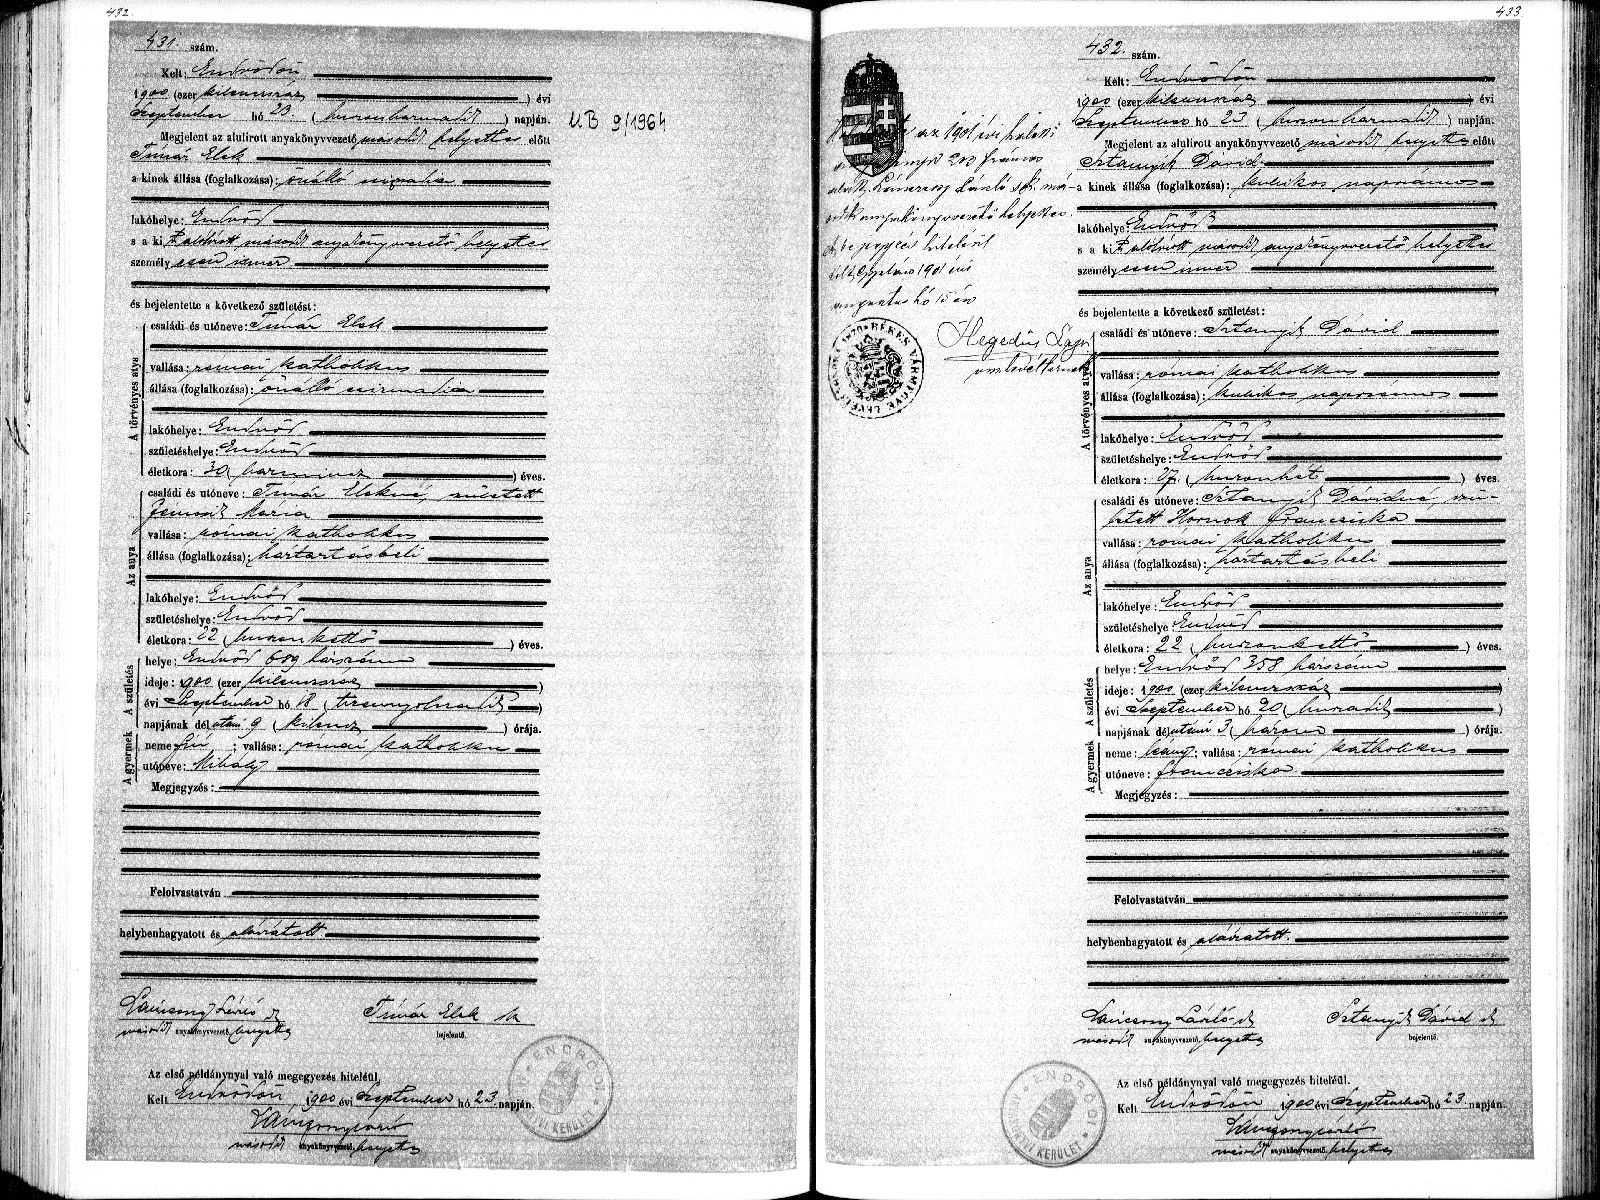 432.
431. szám.
Kelt: Endrődön
1900 (ezer kilenczszáz) évi
Szeptember hó 23 (huszonharmadik) napján.
Megjelent az alulirott anyakönyvvezető másodk helyettes előtt
Tímár Elek
a kinek állása (foglalkozása): önálló csizmadia
lakóhelye: Endrőd
s a kit alólirott másodk anyakönyvvezető helyettes
személyesen ismer
és bejelentette a következő születést:
A törvényes atya
családi és utóneve: Tímár Elek
vallása: római katholikus
állása (foglalkozása): önálló csizmadia
lakóhelye: Endrőd
születéshelye: Endrőd
életkora: 30 (harmincz) éves.
Az anya
családi és utóneve: Tímár Elekné, született
Mária
vallása: római katholikus
állása (foglalkozása): háztartásbeli
lakóhelye: Endrőd
születéshelye: Endrőd
életkora: 22 (huszonkettő) éves.
A születés
helye: Endrőd 609 házszám
ideje: 1900 (ezer kilenczszáz)
évi Szeptember hó 18 (tizennyolczadik)
napjának délutáni 9 (kilencz) órája.
A gyermek
neme: fiú; vallása: római katholikus
utóneve: Mihály
Megjegyzés:
Felolvastatván
helybenhagyatott és aláiratott
Láncsony László sk
másodk anyakönyvvezető helyettes
Tímár Elek sk
bejelentő.
Az első példánynyal való megegyezés hiteléül.
Kelt Endrődön 1900 évi Szeptember hó 23 napján.
másodk anyakönyvvezető helyettes
ENDRŐDI KERÜLET
U.B 9/1964
433
az 1901 évi halotti
203 folyószám
László sk. má-
sodk anyakönyvvezető helyettes.
A bejegyzés hiteléül
kelt Gyulán 1901 évi
augusztus hó 15 én
Hegedűs Lajos
BÉKÉS VÁRMEGYE
432. szám.
Kelt: Endrődön
1900 (ezer kilenczszáz) évi
Szeptember hó 23 (huszonharmadik) napján.
Megjelent az alulirott anyakönyvvezető másodk helyettes előtt
Sztanyik Dávid
a kinek állása (foglalkozása): kubikos napszámos
lakóhelye: Endrőd
s a kit alólirott másodk anyakönyvvezető helyettes
személyesen ismer
és bejelentette a következő születést:
A törvényes atya
családi és utóneve: Sztanyik Dávid
vallása: római katholikus
állása (foglalkozása): kubikos napszámos
lakóhelye: Endrőd
születéshelye: Endrőd
életkora: 27 (huszonhét) éves.
Az anya
családi és utóneve: Sztanyik Dávidné, szü-
letett Hornok Francziska
vallása: római katholikus
állása (foglalkozása): háztartásbeli
lakóhelye: Endrőd
születéshelye: Endrőd
életkora: 22 (huszonkettő) éves.
A születés
helye: Endrőd 358 házszám
ideje: 1900 (ezer kilenczszáz)
évi Szeptember hó 20 (huszadik)
napjának délutáni 3 (három) órája.
A gyermek
neme: leány; vallása: római katholikus
utóneve: Francziska
Megjegyzés:
Felolvastatván
helybenhagyatott és aláiratott.
Láncsony László sk
másodk anyakönyvvezető helyettes
Sztanyik Dávid sk
bejelentő.
Az első példánynyal való megegyezés hiteléül.
Kelt Endrődön 1900 évi Szeptember hó 23 napján.
másodk anyakönyvvezető helyettes
ENDRŐDI KERÜLET